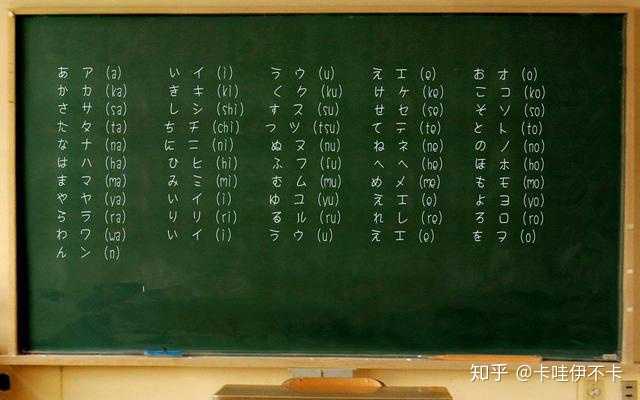 あ ア (a) い イ (i) う ウ (u) え エ (e) お オ (o)
か カ (ka) き キ (ki) く ク (ku) け ケ (ke) こ コ (ko)
さ サ (sa) し シ (shi) す ス (su) せ セ (se) そ ソ (so)
た タ (ta) ち チ (chi) つ ツ (tsu) て テ (te) と ト (to)
な ナ (na) に ニ (ni) ぬ ヌ (nu) ね ネ (ne) の ノ (no)
は ハ (ha) ひ ヒ (hi) ふ フ (fu) へ ヘ (he) ほ ホ (ho)
ま マ (ma) み ミ (mi) む ム (mu) め メ (me) も モ (mo)
や ヤ (ya) い イ (i) ゆ ユ (yu) え エ (e) よ ヨ (yo)
ら ラ (ra) り リ (ri) る ル (ru) れ レ (re) ろ ロ (ro)
わ ワ (wa) い イ (i) う ウ (u) え エ (e) を ヲ (o)
ん ン (n)
知乎 @卡哇伊不卡